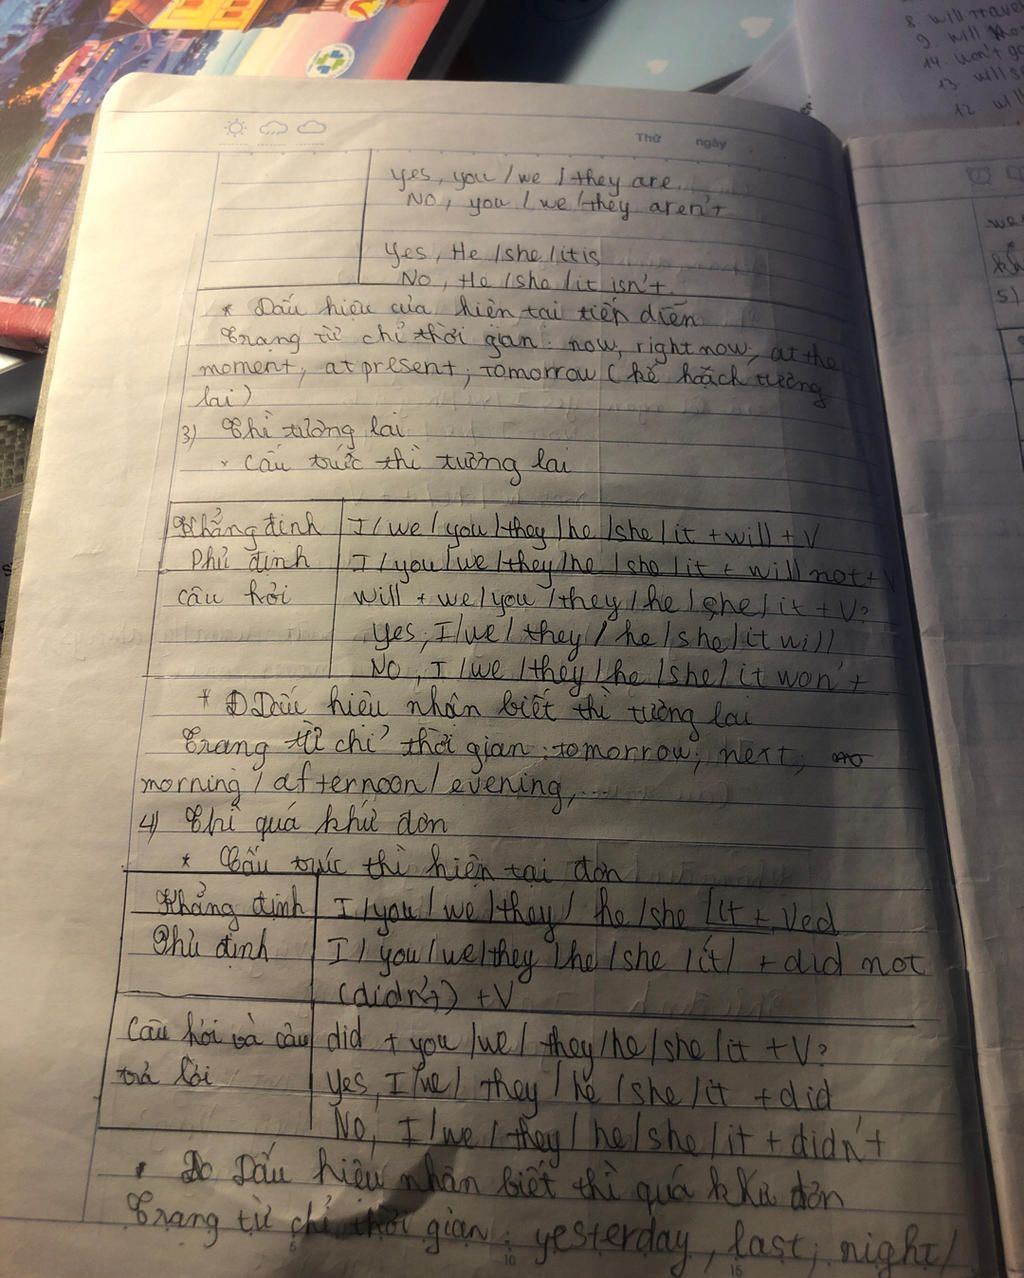 Thứ ngày
Yes, you / we / they are
NO, you / we / they aren't
Yes, He / she / it is
NO, He / she / it isn't
* Dấu hiệu của hiện tại tiếp diễn
Trạng từ chỉ thời gian: now, right now, at the
moment, at present, tomorrow (kế hoạch tương
lai)
3) Thì tương lai
* Cấu trúc thì tương lai
Khẳng định I / we / you / they / he / she / it + will + V
Phủ định I / you / we / they / he / she / it + will not + V
câu hỏi will + we / you / they / he / she / it + V?
Yes, I / we / they / he / she / it will
NO, I / we / they / he / she / it won't
* Dấu hiệu nhận biết thì tương lai
Trạng từ chỉ thời gian: tomorrow, next,
morning / afternoon / evening, ...
4) Thì quá khứ đơn
* Cấu trúc thì hiện tại đơn
Khẳng định I / you / we / they / he / she / it + Ved
Phủ định I / you / we / they / he / she / it / + did not
(didn't) + V
Câu hỏi và câu did + you / we / they / he / she / it + V?
trả lời Yes, I / we / they / he / she / it + did
No, I / we / they / he / she / it + didn't
* Dấu hiệu nhận biết thì quá khứ đơn
Trạng từ chỉ thời gian: yesterday, last, night /
8. will travel
14. won't go
12
5)